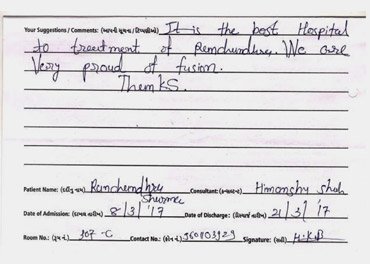 Your Suggestions / Comments: (આપની સૂચના / ટિપ્પણીઓ) It is the best Hospital
to treetment of Remchundhre. We are
Very proud of fusion.
Themks.
Patient Name: (દર્દીનું નામ) Ramchemdhre Consultant: Himanshu shah
Sharma
Date of Admission: (દાખલ તારીખ) 8/3/'17 Date of Discharge: 21/3/'17
Room No.: (રૂમ નં.) 307-C Contact No.: Signature: (સહી)